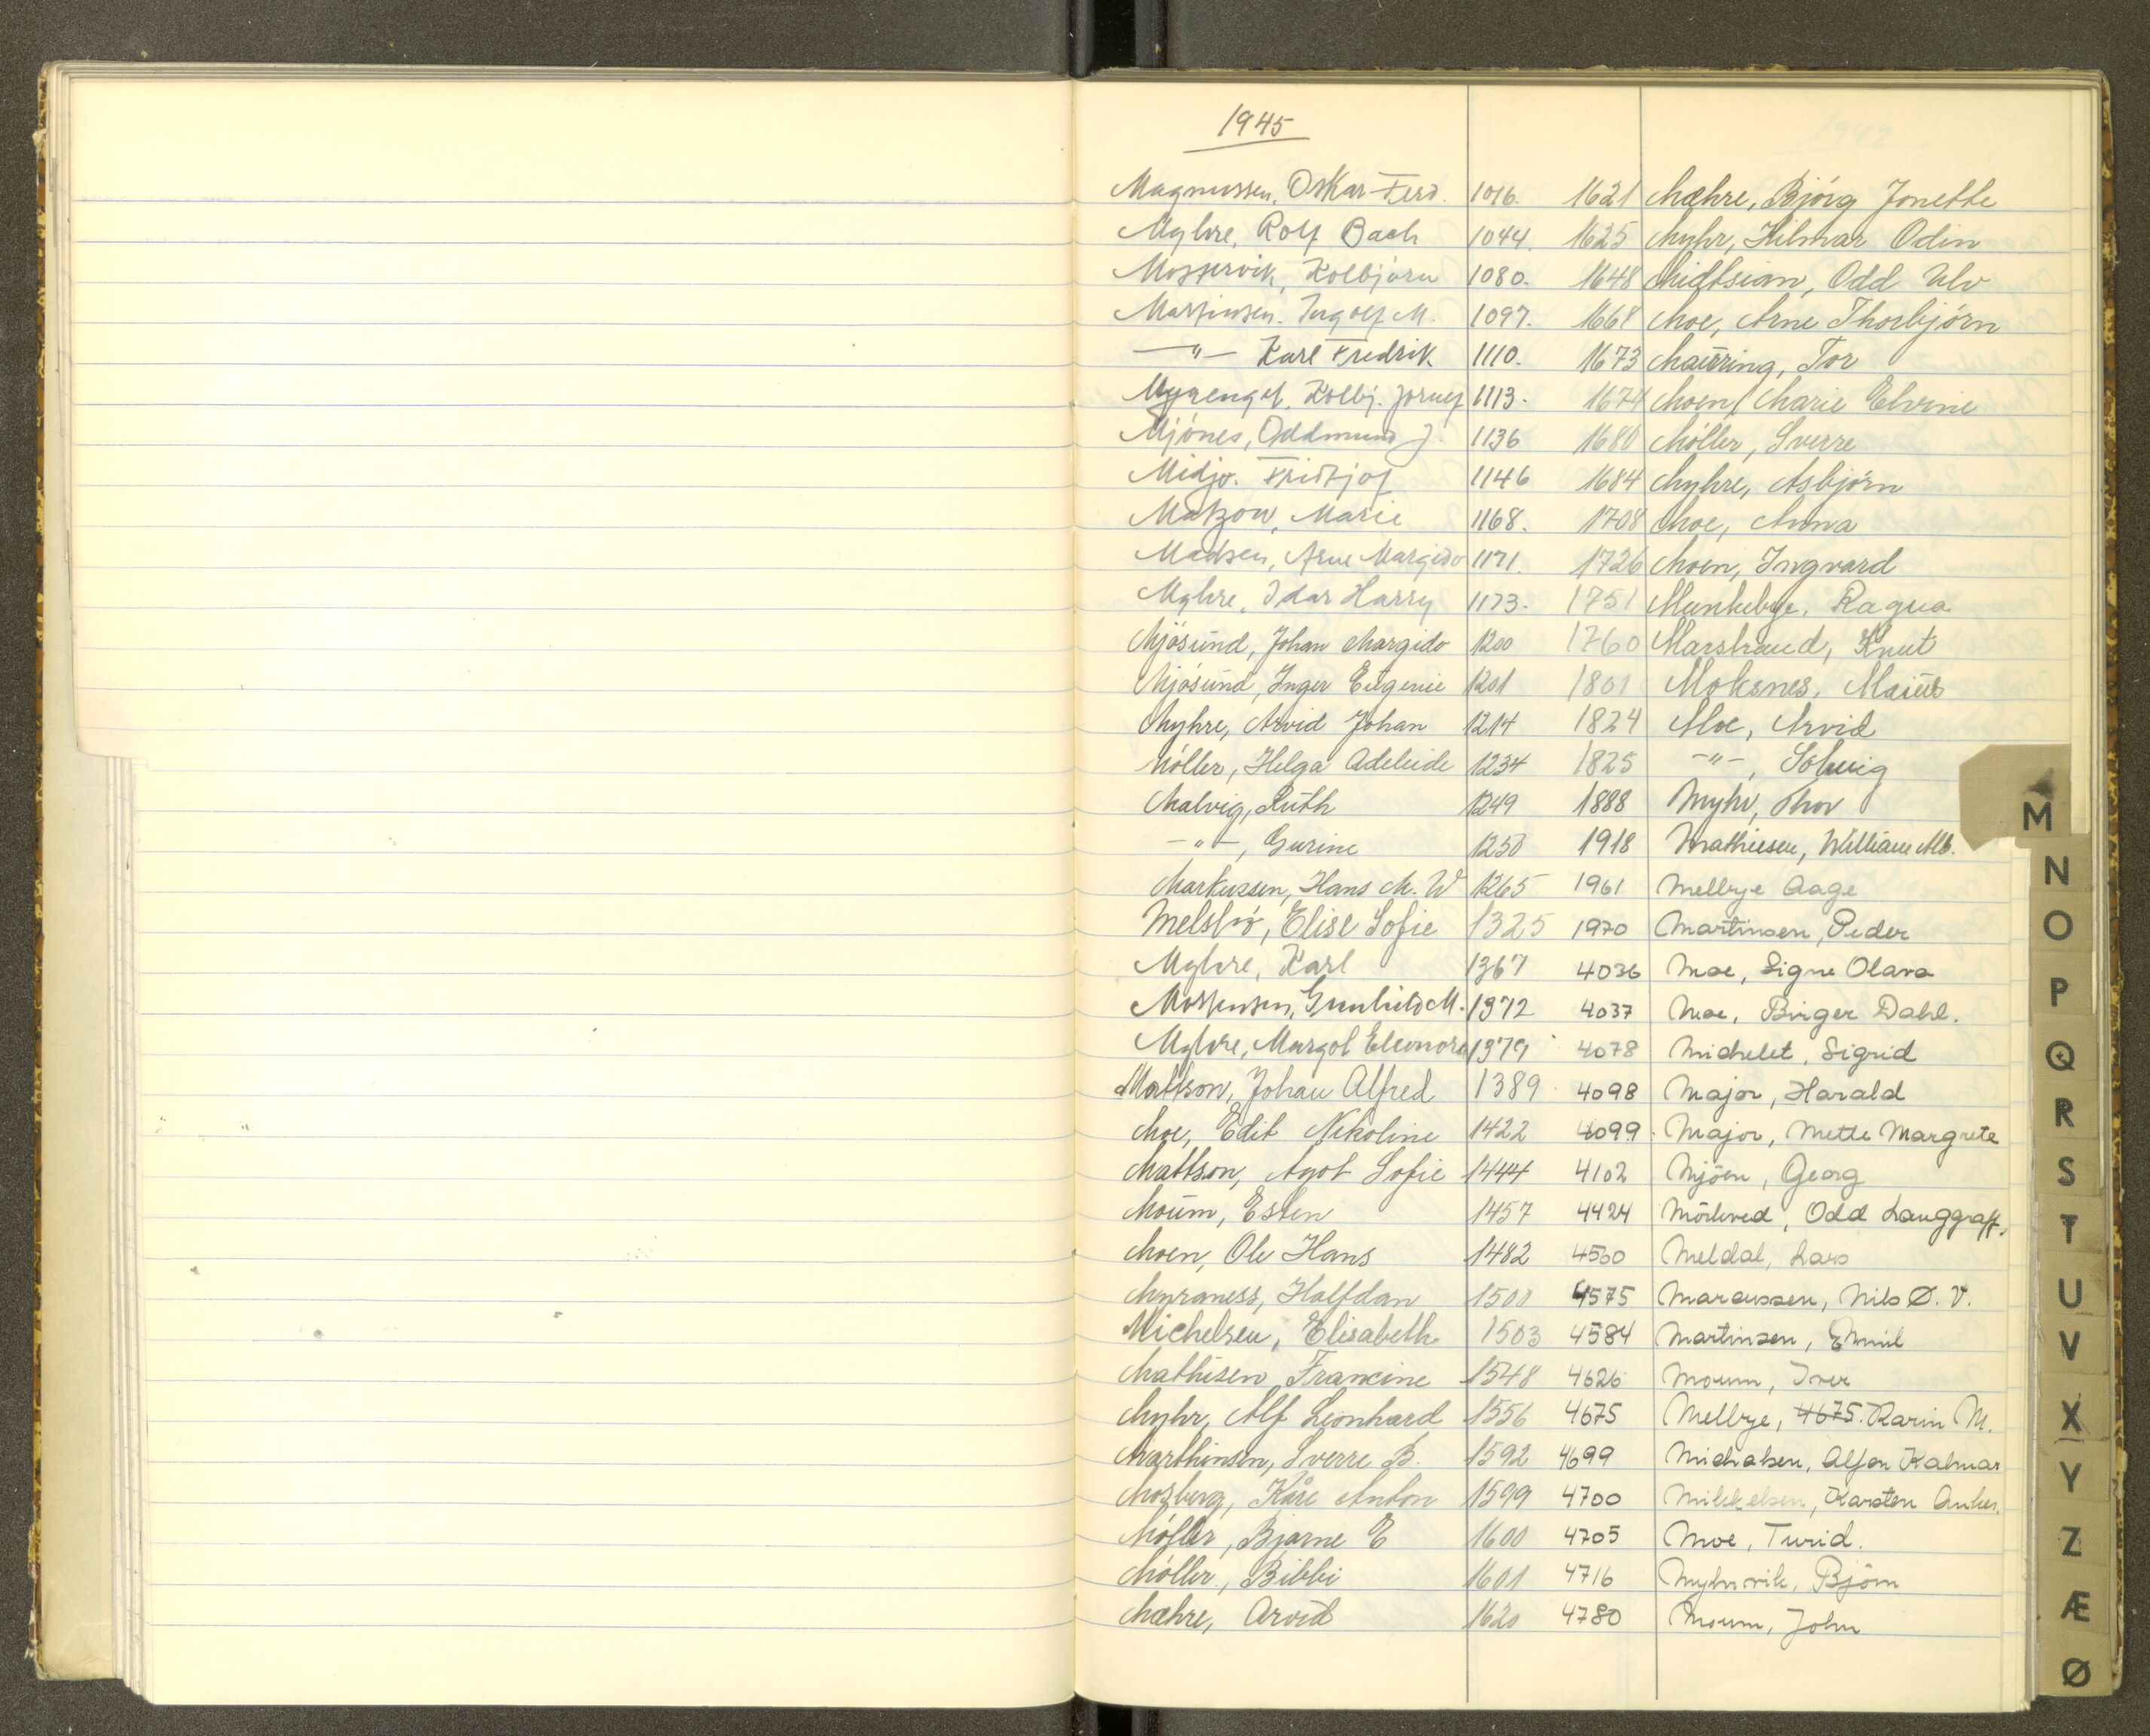 1945
Magnussen, Oskar Ferd. 1016. 1621 Mæhre, Bjørg Jonette
Myhre, Rolf Bach 1044. 1625 Myhr, Hilmar Odin
Mosservik, Kolbjørn 1080. 1648 Midtsian, Odd Ulv
Martinsen. Ingolf M. 1097. 1668 Moe, Arne Thorbjørn
—"— Karl Fredrik 1110. 1673 Mauring, Tor
Myrenget, Kolbj. 1113. 1674 Moen, Marie Elvine
Mjónes, Oddmund J. 1136 1680 Móller, Sverre
Midjo. Fridtjof 1146 1684 Myhre, Asbjørn
Matzow, Marie 1168. 1708 Moe, Anna
Madsen, Arne Margido 1171. 1726 Moen, Ingvard
Myhre, Idar Harry 1173. 1751 Munkebye, Ragna
Mjósund, Johan Margido 1200 1760 Marstrand, Knut
Mjósund, Inger Eugenie 1201 1801 Moksnes, Marius
Myhre, Arvid Johan 1214 1824 Moe, Arvid
Móller, Helga Adeleide 1234 1825 —"—, Solveig
Malvig, Ruth 1249 1888 Myhr, Thor
—"—, Gurine 1250 1918 Mathiesen, William Alb.
Markussen, Hans M. W 1265 1961 Mellbye Aage
Melsbó, Elise Sofie 1325 1970 Martinsen, Peder
Myhre, Karl 1367 4036 Moe, Signe Olava
Mortensen, Gunhild M. 1372 4037 Moe, Birger Dahl.
Myhre, Margot Eleonora 1379 4078 Michelet, Sigrid
Mattson, Johan Alfred 1389. 4098 Major, Harald
Moe, Edit Nikoline 1422 4099. Major, Mette Margrete
Mattson, Agot Sofie 1444 4102 Mjöen, Georg
Moum, Esten 1457 4424 Mörkved, Odd Langgraff.
Moen, Ole Hans 1482 4560 Meldal, Lars
Myraness, Halfdan 1500 4575 Marcussen, Nils Ø. V.
Michelsen, Elisabeth 1503 4584 Martinsen, Emil
Mathisen Francine 1548 4626 Moum, Iver
Myhr, Alf Leonhard 1556 4675 Mellbye, 4675. Karin M.
Marthinsen, Sverre B. 1592 4699 Michalsen, Alfon Kalmar
Mosberg, Kåre Anton 1599 4700 Mikkelsen, Karsten Anker.
Móller, Bjarne E 1600 4705 Moe, Turid.
Móller, Bibbi 1601 4716 Myhrvik, Björn
Mæhre, Arvid 1620 4780 Moum, John
M
N
O
P
Q
R
S
T
U
V
X
Y
Z
Æ
Ø